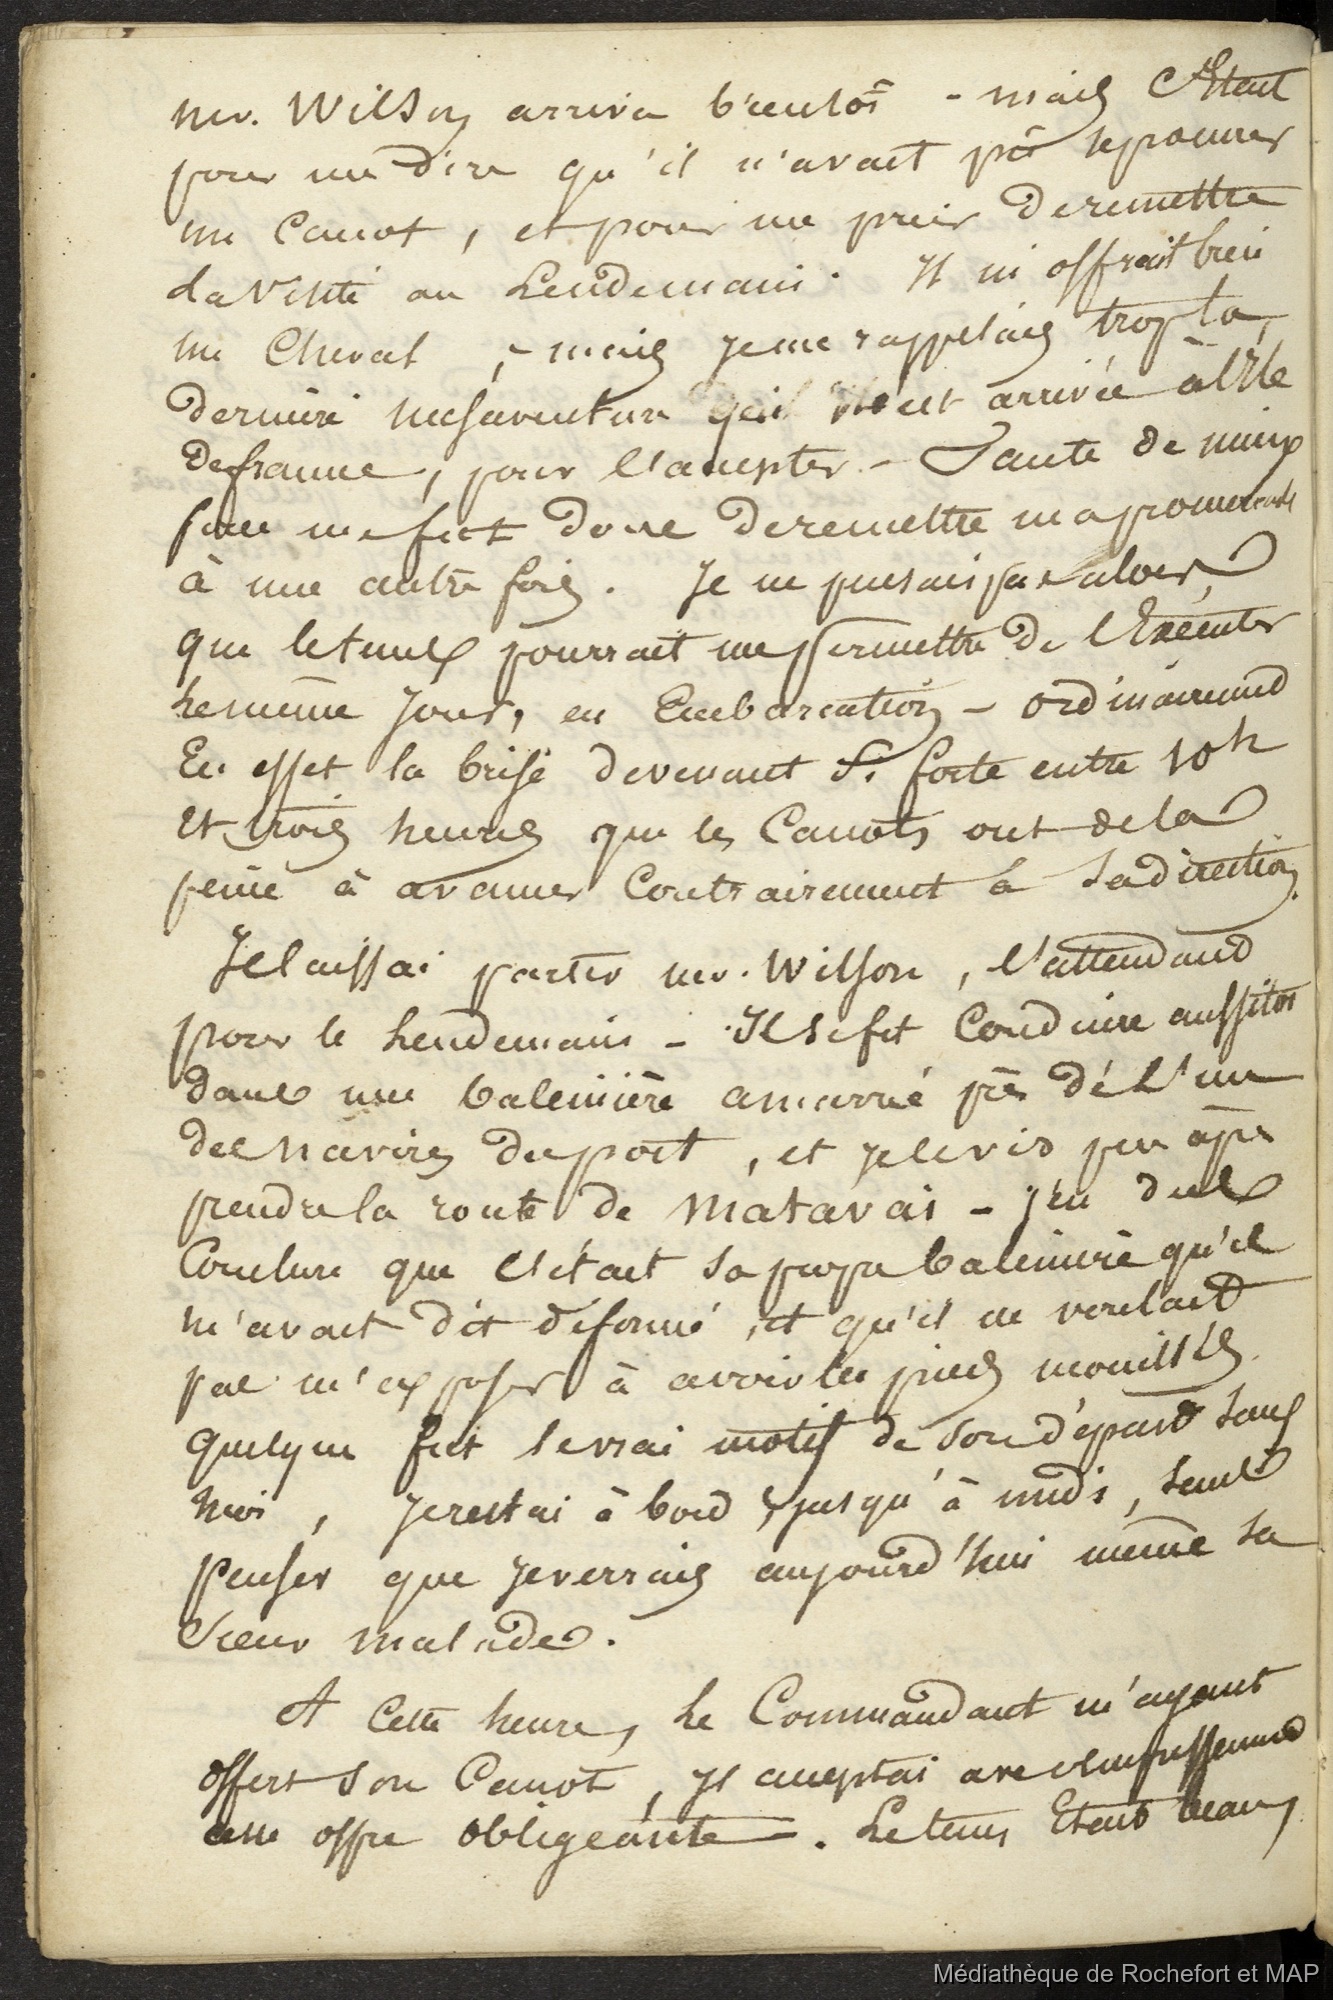 mr. Wilson arriva bientôt - mais C'étaut
pour me dire qu'il n'avait pû se procurer
un Canot, et pour me prier de remettre
la Visite au Lendemain. Il m'offrait bien
un Cheval, - mais je me rappelais trop la
dernière mésaventure qui m'est arrivée à l'Ile
de france, pour l'accepter. - Faute de mieux
force me fut donc de remettre ma promenade
à une autre fois. Je ne pensais pas alors,
que le tems pourrait me permettre de l'Exécuter
le même Jour, en Embarcation - ordinairement
En effet la brise devenant Si forte entre 10h
Et trois heures que les Canots ont de la
peine à avancer Contrairement à sa direction.
Je laissai partir mr. Wilson, l'attendant
pour le Lendemain - Il se fit Conduire aussitôt
dans une baleinière amarré près de L'un
des navires du port, et je le vis peu après
prendre la route de Matavai - j'en dus
Conclure que C'était sa propre baleinière qu'il
m'avait dit défoncé, et qu'il ne voulait
pas m'exposer à avoir les pieds mouillés.
quelque fut le vrai motif de son départ sans
moi, je restai à bord, jusqu'à midi, sans
penser que je verrais aujourd'hui même sa
Soeur malade.
A Cette heure, Le Commandant m'ayant
offert son Canot, j'acceptai avec empressement
cette offre obligeante. Le tems Etant beau,
Médiathèque de Rochefort et MAP